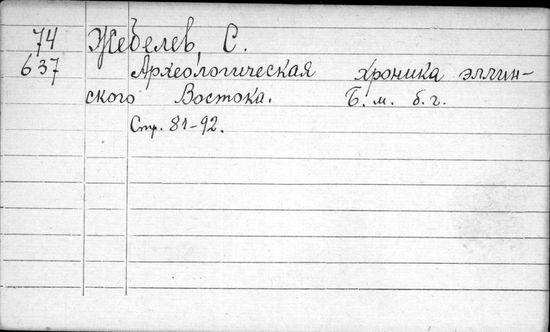 74 Жебелев, С.
637 Археологическая хроника эллин-
ского Востока. Б. м. б. г.
Стр. 81-92.